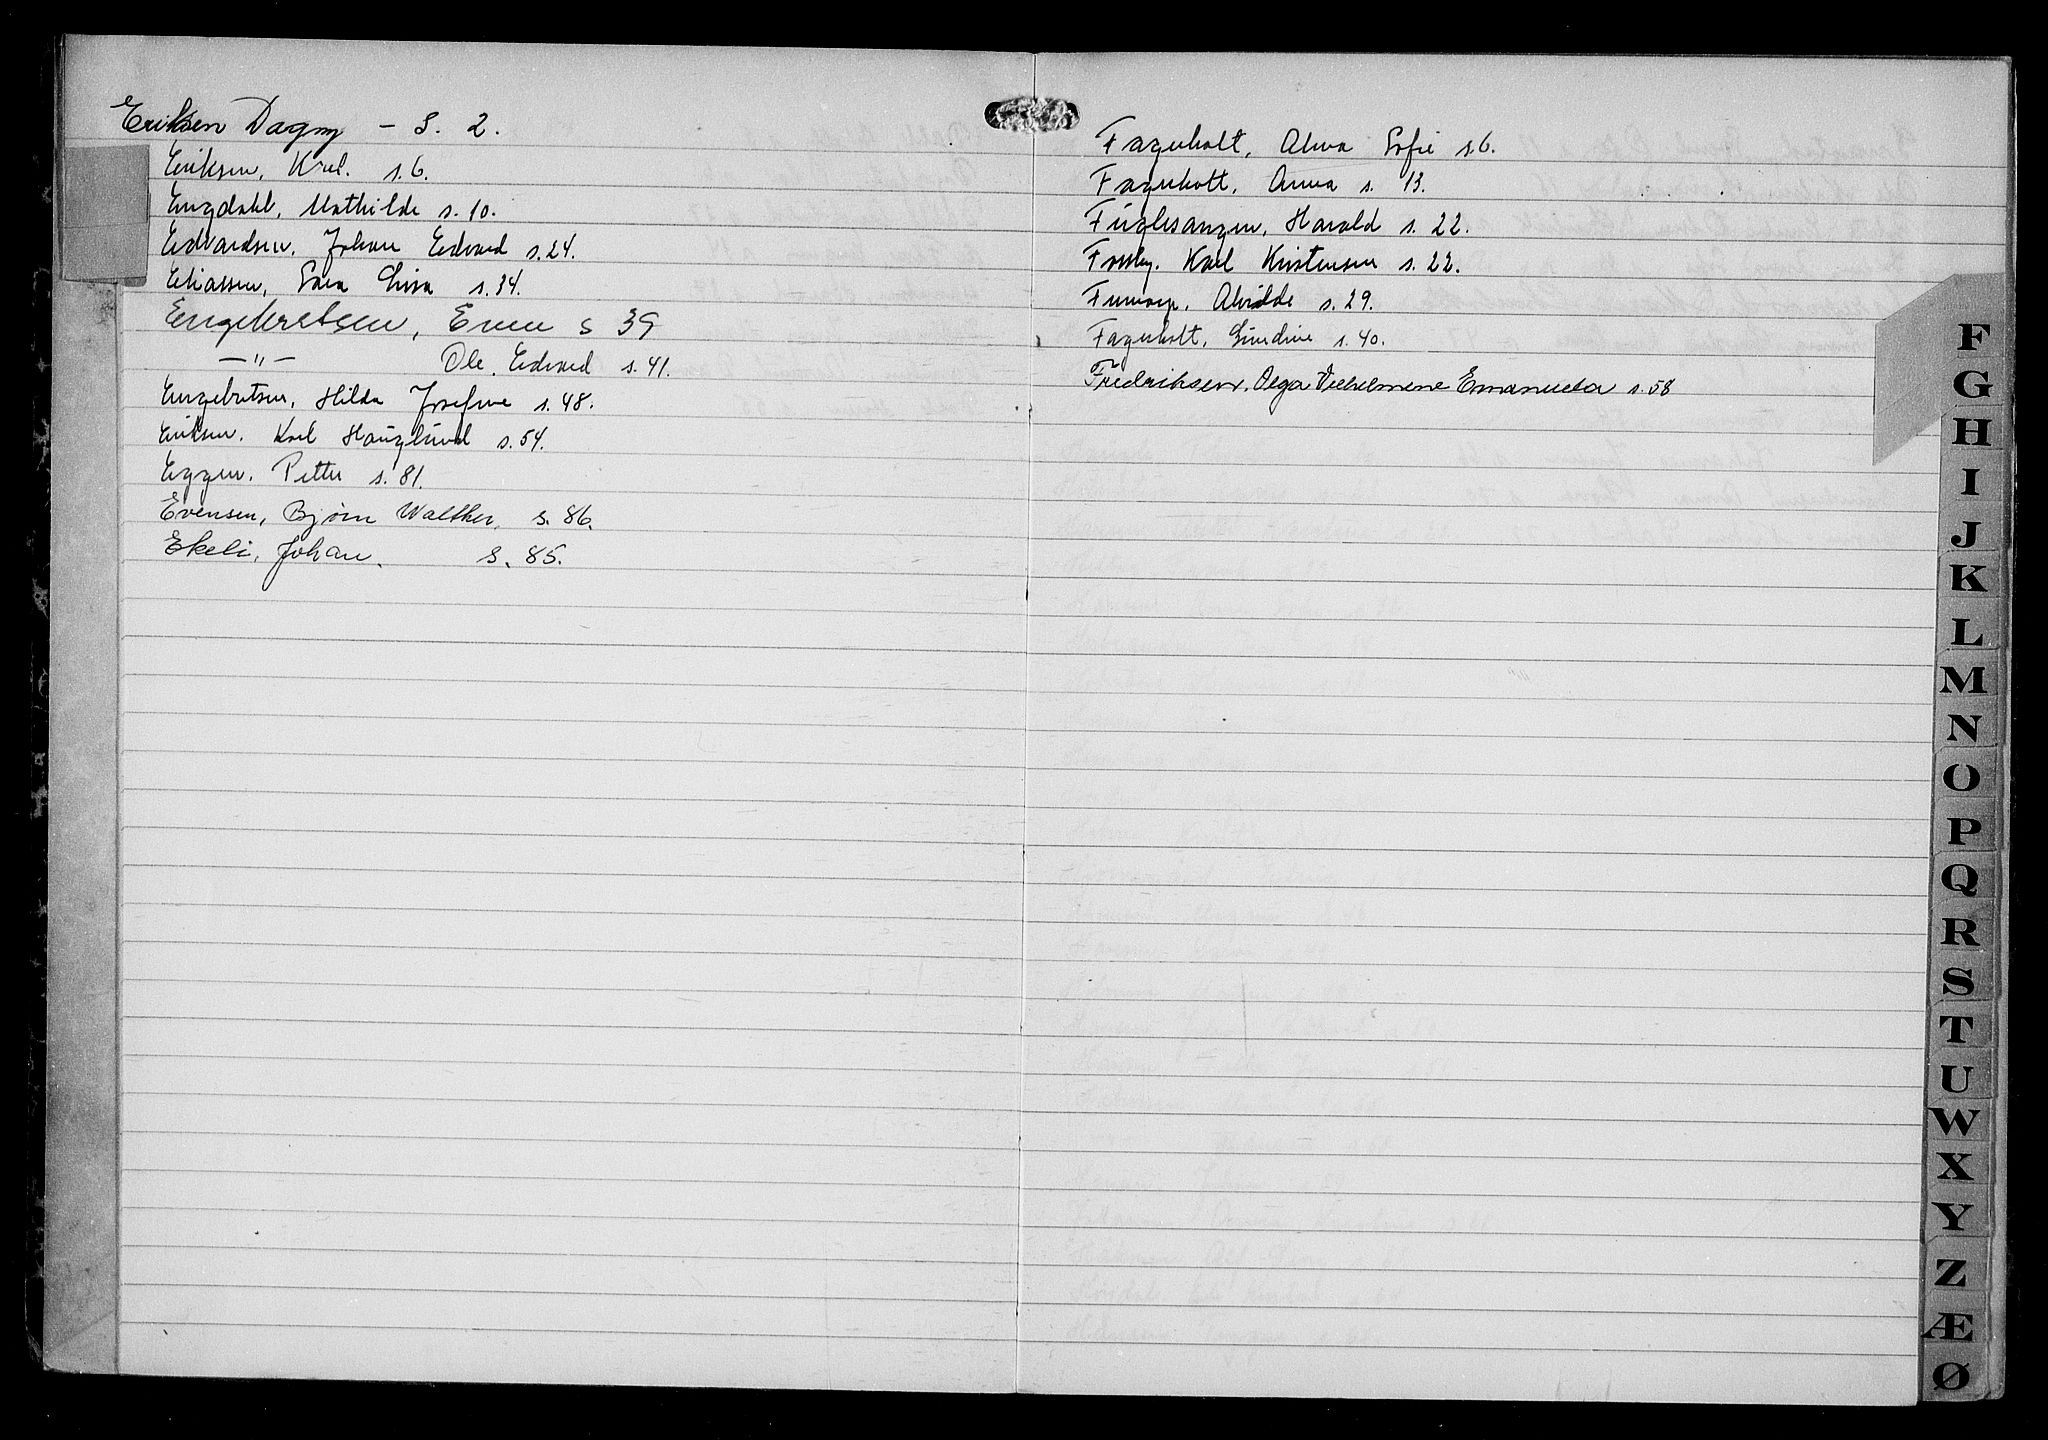 Eriksen Dagny - S. 2.
Eriksen, Karl. s. 6.
Engdahl, Mathilde s. 10.
Edvardsen, Johan Edvard s. 24.
Eliassen, Sara Lina s. 34.
Engebretsen, Emen s 39
—"— Ole. Edvard s. 41.
Engebretsen, Hilda Josefine s. 48.
Eriksen. Karl Hauglund s. 54.
Eggen. Petter s. 81.
Evensen, Bjørn Walther. s. 86.
Ekeli, Johan. s. 85.
Fagerholt, Alma Sofie s. 6.
Fagerholt, Anna s. 13.
Fuglesangen, Harald s. 22.
Fossby. Karl Kristensen s. 22.
Alvilde s. 29.
Fagerholt, Gundine s. 40.
Fredriksen, Olga Vilhelmene Emanuela s. 58
F
G
H
I
J
K
L
M
N
O
P
Q
R
S
T
U
W
X
Y
Z
Æ
Ø